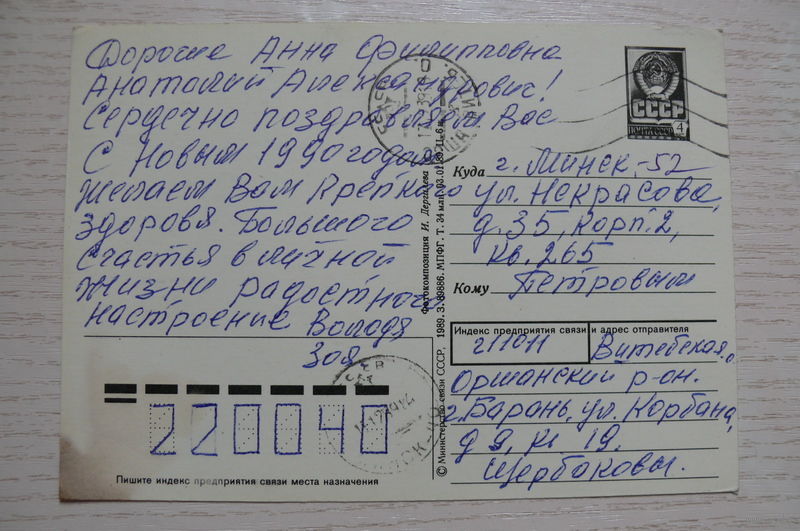 Дорогие Анна Филипповна
Анатолий Александрович!
Сердечно поздравляем Вас
С Новым 1990 годом
желаем Вам крепкого
здоровя. Большого
счастья в личной
жизни радостного
настроение Володя
Зоя
СССР
ПОЧТА СССР 4
Куда г. Минск-52
ул. Некрасова,
д. 35, корп. 2,
кв. 265
Кому Петровым
Индекс предприятия связи и адрес отправителя
211011 Витебская о.
Оршанский р-он.
г. Барань, ул. Корбана,
д 9, к 19.
Щербаковы.
Фотокомпозиция И. Дергилева
© Министерство связи СССР, 1989. З. 89886. МПФГ. Т. 34 мал.
220040
Пишите индекс предприятия связи места назначения